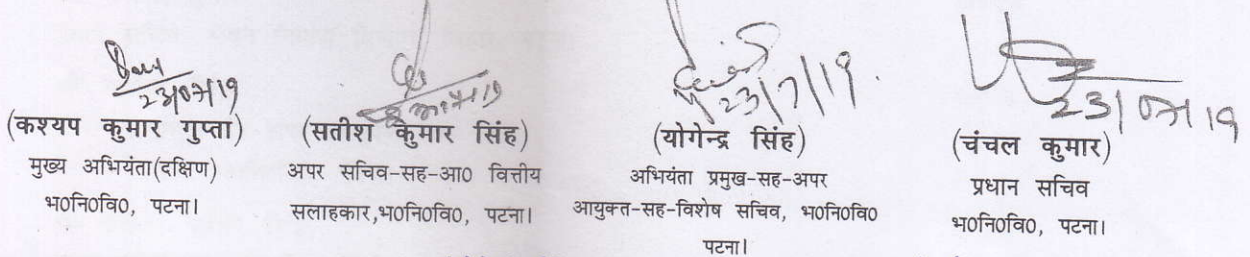 23/07/19
(कश्यप कुमार गुप्ता)
मुख्य अभियंता(दक्षिण)
भ0नि0वि0, पटना।
(सतीश कुमार सिंह)
अपर सचिव-सह-आ0 वित्तीय
सलाहकार,भ0नि0वि0, पटना।
23/7/19
(योगेन्द्र सिंह)
अभियंता प्रमुख-सह-अपर
आयुक्त-सह-विशेष सचिव, भ0नि0वि0
पटना।
23/07/19
(चंचल कुमार)
प्रधान सचिव
भ0नि0वि0, पटना।